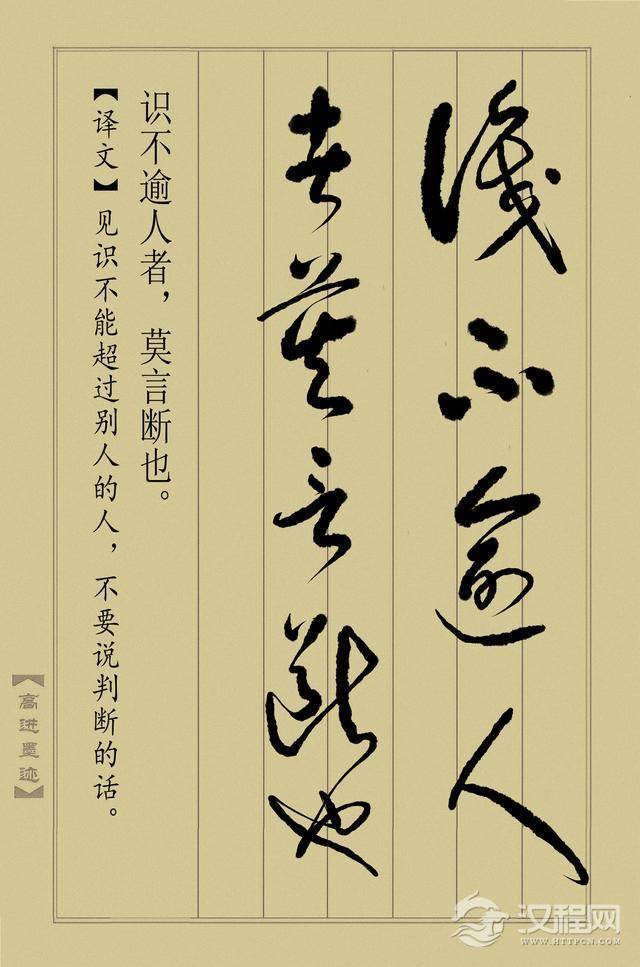 識不逾人
者莫言断也
识不逾人者，莫言断也。
【译文】见识不能超过别人的人，不要说判断的话。
【高进墨迹】
汉程网
WWW.HTTPCN.COM